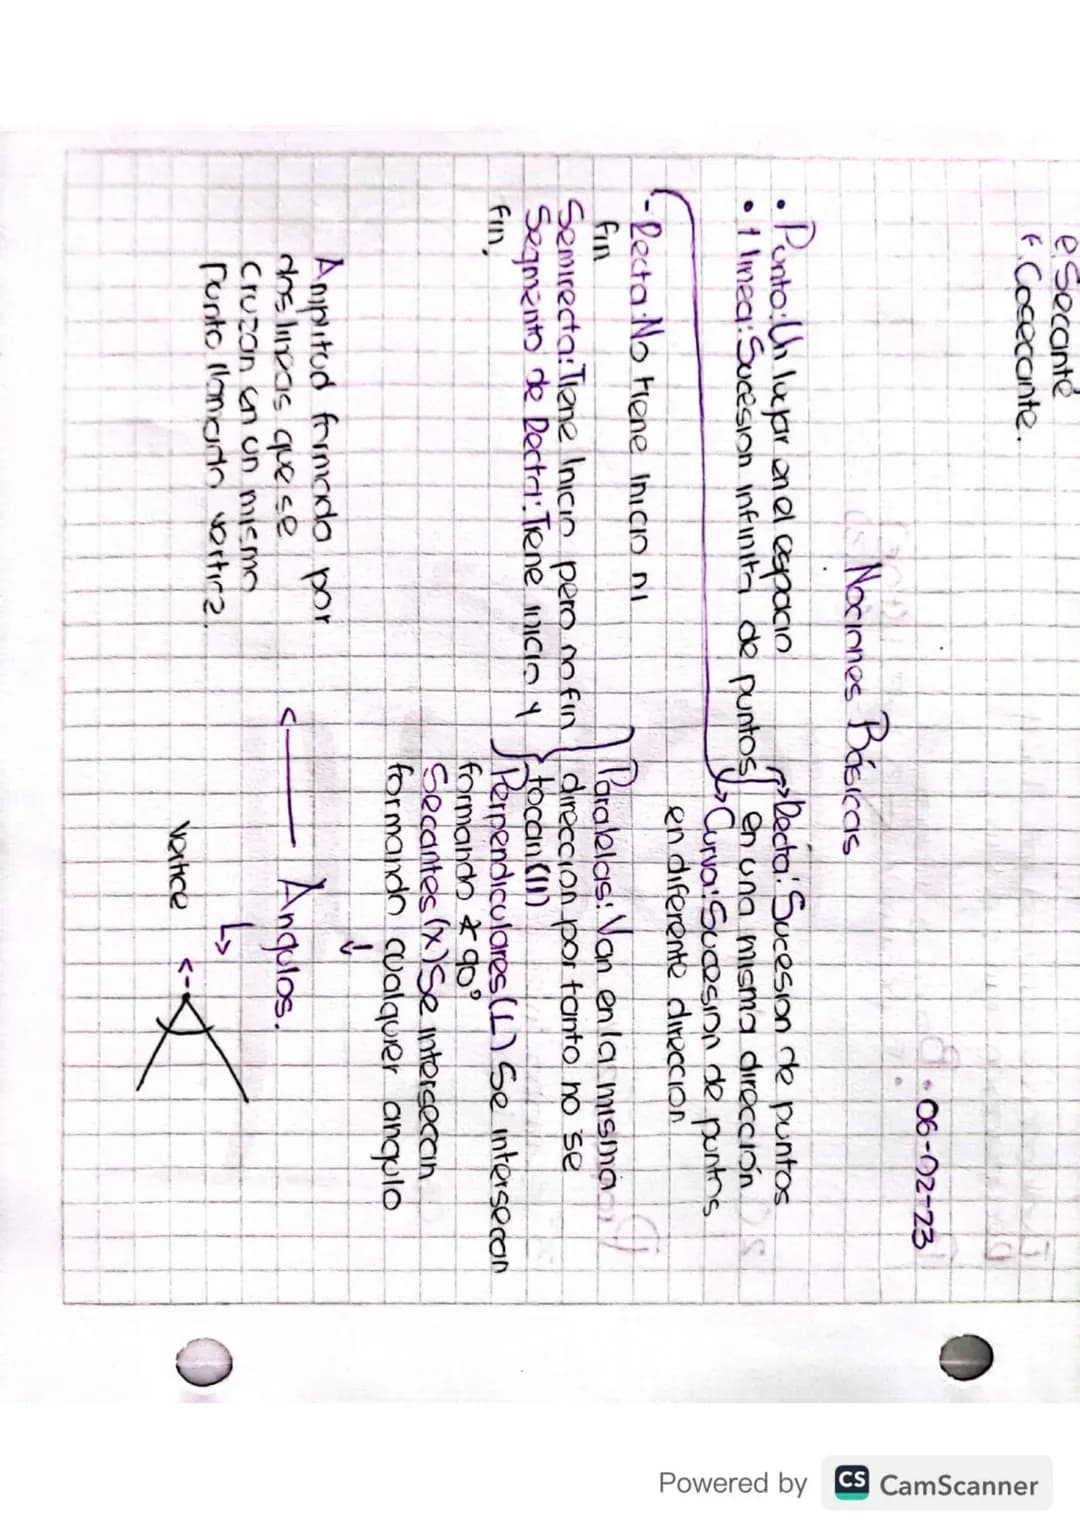 e. Secante
f. Cosecante.
06-02-23
Nociones Básicas
• Punto: Un lugar en el espacio
• 1 linea: Sucesion infinita de puntos
Recta: Sucesion de puntos
en una misma dirección
Curva: Sucesion de puntos
en diferente direccion
- Recta: No tiene inicio ni
fin
Semirecta: Tiene Inicio pero no fin
Segmento de Recta: Tiene inicio y
fin.
Paralelas: Van en la misma
direccion por tanto no se
tocan (||)
Perpendiculares (⊥) Se intersecan
formando ∡ 90°
Secantes (x) Se intersecan
formando cualquier angulo
Angulos.
Amplitud formado por
dos lineas que se
cruzan en un mismo
Punto, llamado vertice.
Vertice
Powered by CS CamScanner